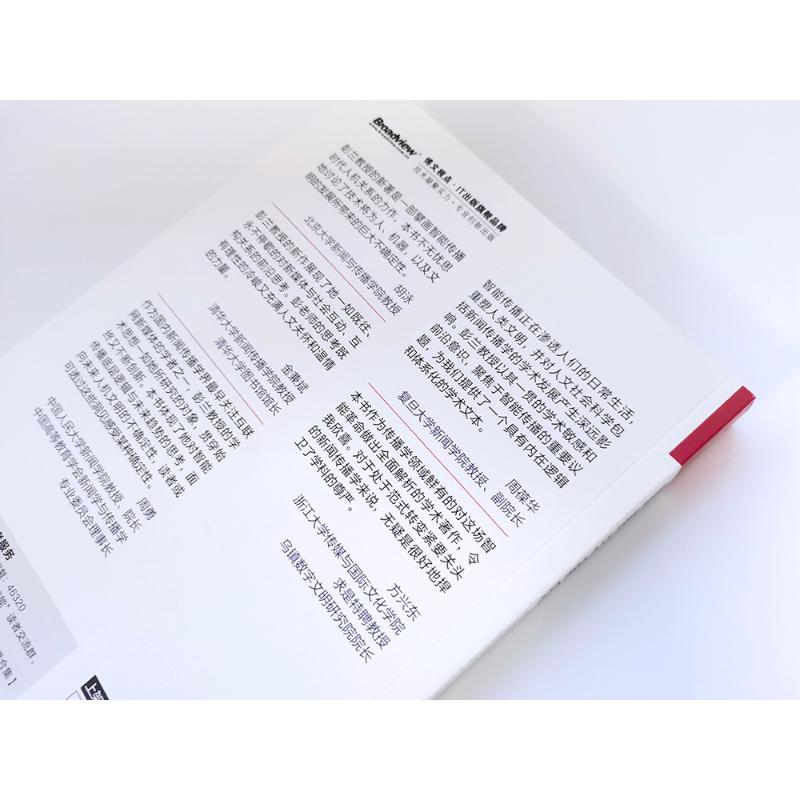 Broadview
博文视点·IT出版旗舰品牌
技术凝聚实力·专业创新出版
彭兰教授的新著是一部擘画智能传播
时代人机关系的力作，本书不无忧思
地讨论了技术将为人、机器，以及文
明的发展所带来的巨大不确定性。
胡泳
北京大学新闻与传播学院教授
彭兰教授的新作展现了她一如既往、
永不停歇的对新媒体与社会互动、互
构关系的前沿思考。彭老师的思考既
有理性的冷峻又充满人文关怀和温情
的力量。
金兼斌
清华大学新闻传播学院教授
清华大学图书馆馆长
作为国内新闻传播学界最早关注互联
网新媒体的学者之一，彭兰教授的学
术思想，如她所研究的对象，贯穿始
终又不断创新。本书体现了她对智能
传播底层逻辑与未来趋势的思考，面
向未来人机文明的不确定性，读者或
可透过这些洞见感受某种确定性。
周勇
中国人民大学新闻学院教授、院长
中国高等教育学会新闻学与传播学
专业委员会理事长
智能传播正在渗透人们的日常生活，
重塑人类文明，并对人文社会科学包
括新闻传播学的学术发展产生深远影
响。彭兰教授以其一贯的学术敏感和
前沿意识，聚焦于智能传播的重要议
题，为我们提供了一个具有内在逻辑
和体系化的学术文本。
周葆华
复旦大学新闻学院教授、副院长
本书作为传播学领域鲜有的对这场智
能革命做出全面解析的学术著作，令
我欣喜。对于处于范式转变紧要关头
的新闻传播学来说，无疑是很好地捍
卫了学科的尊严。
方兴东
浙江大学传媒与国际文化学院
求是特聘教授
乌镇数字文明研究院院长
服务
46320
读者交流群，
合集】
上架